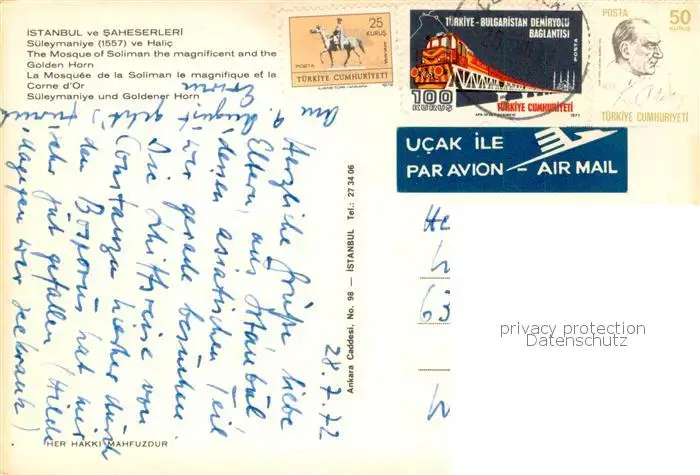 İSTANBUL ve ŞAHESERLERİ
Süleymaniye (1557) ve Haliç
The Mosque of Soliman the magnificent and the
Golden Horn
La Mosquée de la Soliman le magnifique et la
Corne d'Or
Süleymaniye und Goldener Horn
25
KURUŞ
POSTA
ANKARA
TÜRKİYE CUMHURİYETİ
1972
TÜRKİYE - BULGARİSTAN DEMİRYOLU
BAĞLANTISI
POSTA
100
KURUŞ
TÜRKİYE CUMHURİYETİ
1971
POSTA
50
KURUŞ
TÜRKİYE CUMHURİYETİ
UÇAK İLE
PAR AVION - AIR MAIL
28.7.72
Herzliche Grüße liebe
Eltern, aus Istanbul
dessen asiatischen Teil
wir gerade besuchen.
Die Schiffsreise von
Constanza hierher durch
den Bosporus hat mir
sehr gut gefallen (Hilde
Hagen war seekrank)
Am 1. August geht's
Ankara Caddesi, No. 98 — İSTANBUL Tel.: 27 34 06
HER HAKKI MAHFUZDUR
privacy protection
Datenschutz